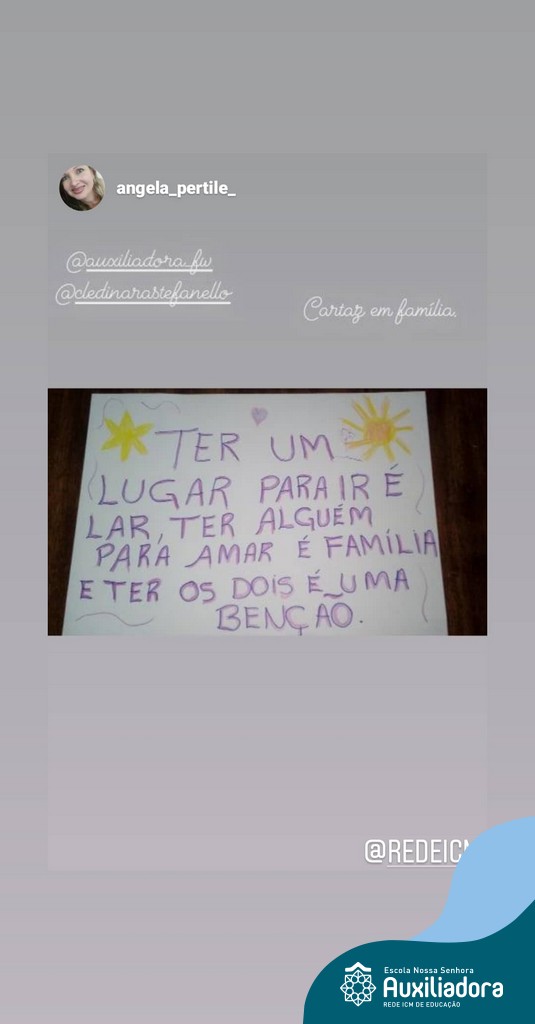 angela_pertile_
@auxiliadora_fw
@cledinarastefanello
Cartaz em família.
TER UM
LUGAR PARA IR É
LAR, TER ALGUÉM
PARA AMAR É FAMÍLIA
E TER OS DOIS É UMA
BENÇÃO.
@REDEICM
Escola Nossa Senhora
Auxiliadora
REDE ICM DE EDUCAÇÃO